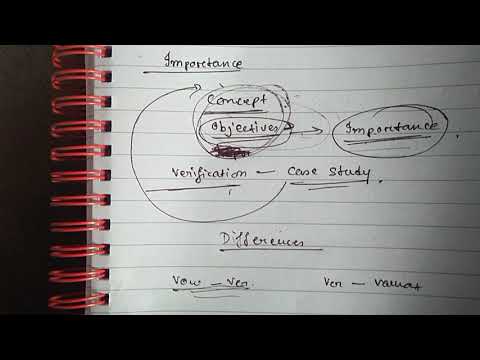 Importance
Concept
Objectives → Importance.
Verification – Case Study.
Differences
Vou – Ver. Ver – Valuat